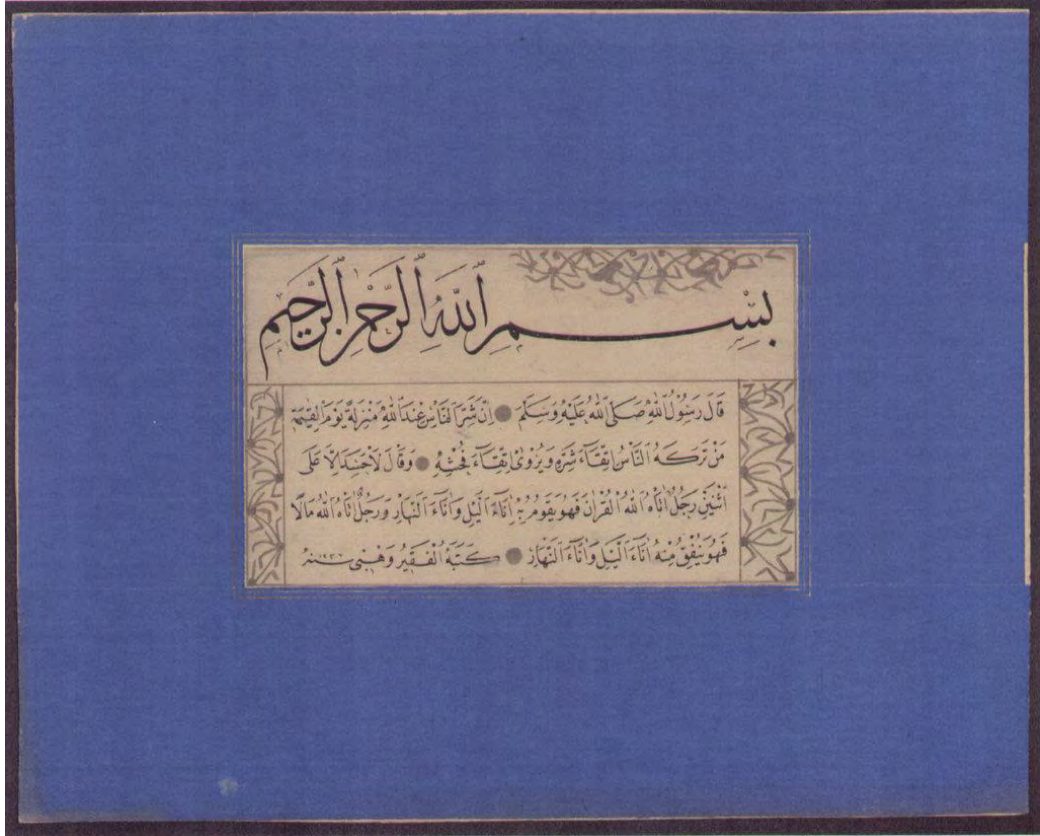 بِسْمِ اللّٰهِ الرَّحْمٰنِ الرَّحِيمِ
قَالَ رَسُولُ اللّٰهِ صَلَّى اللّٰهُ عَلَيْهِ وَسَلَّمَ ● اِنَّ شَرَّ النَّاسِ عِنْدَ اللّٰهِ مَنْزِلَةً يَوْمَ الْقِيٰمَةِ
مَنْ تَرَكَهُ النَّاسُ اِتِّقَآءَ شَرِّهِ وَيُرْوٰى اِتِّقَآءَ فُحْشِهِ ● وَقَالَ لَاحَسَدَ اِلَّا عَلٰى
اثْنَيْنِ رَجُلٌ اٰتَاهُ اللّٰهُ الْقُرْاٰنَ فَهُوَ يَقُومُ بِهِ اٰنَآءَ الَّيْلِ وَاٰنَآءَ النَّهَارِ وَرَجُلٌ اٰتَاهُ اللّٰهُ مَالًا
فَهُوَ يُنْفِقُ مِنْهُ اٰنَآءَ الَّيْلِ وَاٰنَآءَ النَّهَارِ ● كَتَبَهُ الْفَقِيرُ وَهْبِى سنه